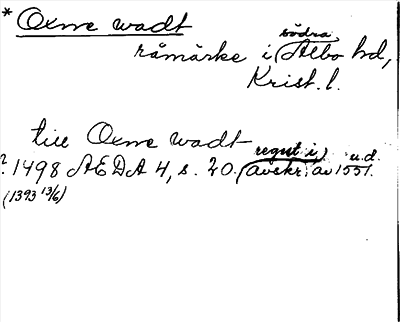 * Oxne wadt
råmärke i södra Albo hd,
Krist. l.
till Oxne wadt
? 1498 AEDA 4, s. 20. (regist i avskr. av 1551. u.d.
(1393 13/6)